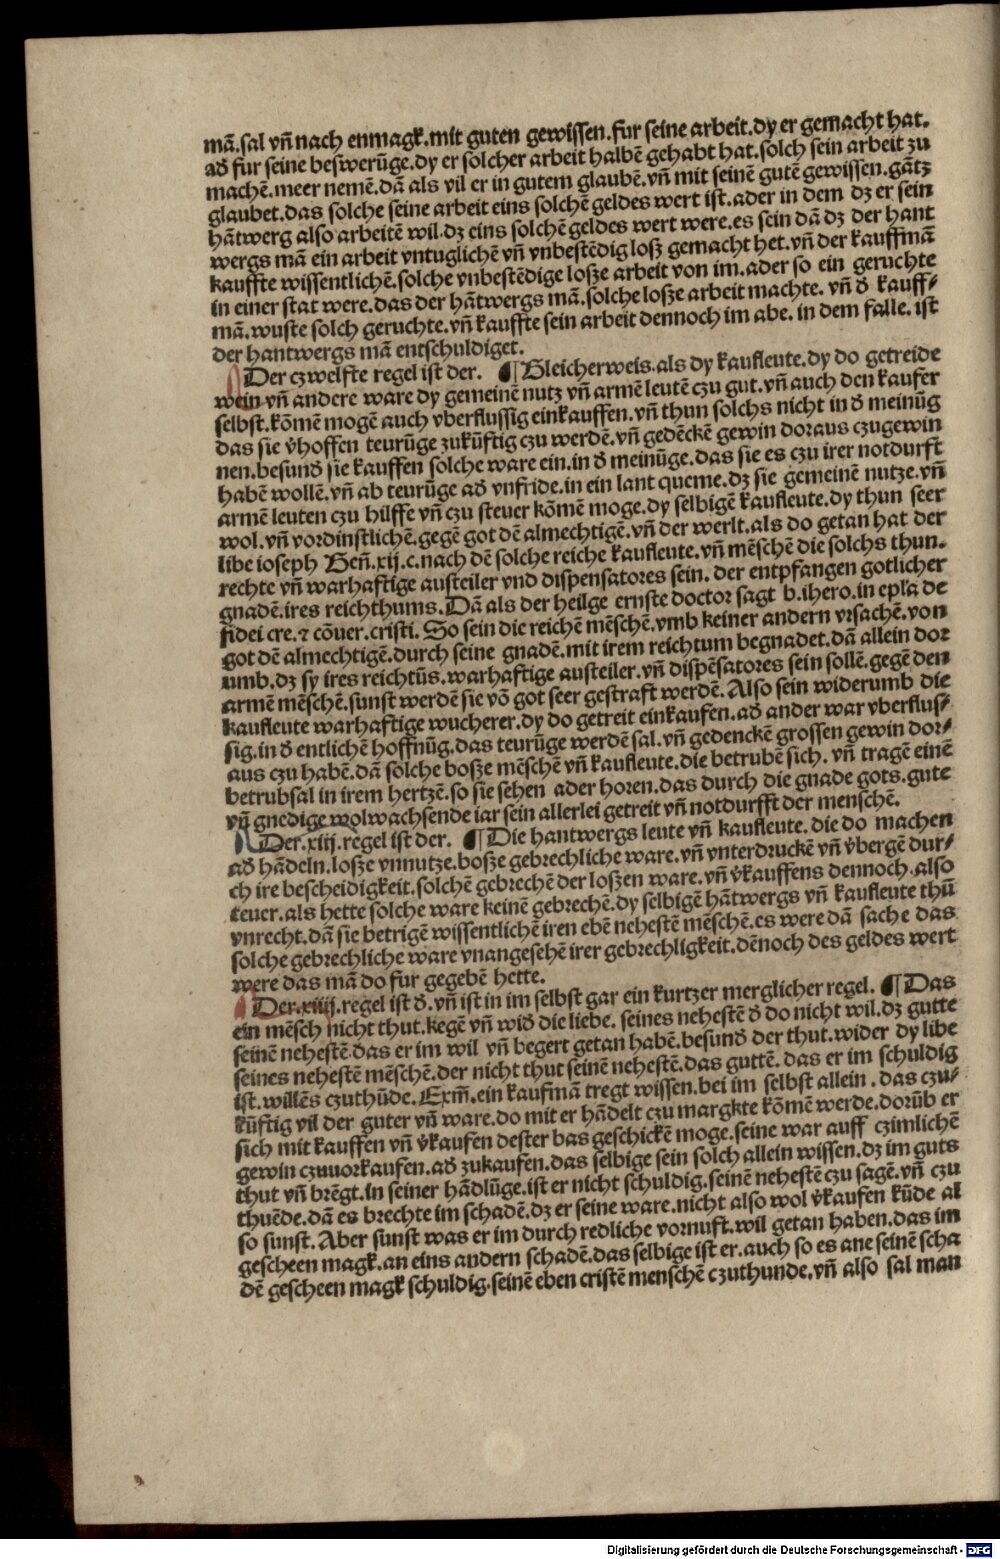 mā.sal vñ nach enmagk.mit guten gewissen.fur seine arbeit.dy er gemacht hat.
ad̄ fur seine beswerūge.dy er solcher arbeit halbē gehabt hat.solch sein arbeit zu
machē.meer nemē.dā als vil er in gutem glaubē.vñ mit seinē gutē gewissen.gātz
glaubet.das solche seine arbeit eins solchē geldes wert ist.ader in dem dz er sein
hātwerg also arbeitē wil.dz eins solchē geldes wert were.es sein dā dz der hant
wergs mā ein arbeit vntuglichē vñ vnbestēdig loſz gemacht het.vñ der kauffmā
kauffte wissentlichē.solche vnbestēdige losze arbeit von im.ader so ein geruchte
in einer stat were.das der hātwergs mā.solche losze arbeit machte. vñ d̄ kauff⸗
mā.wuste solch geruchte.vñ kauffte sein arbeit dennoch im abe. in dem falle. ist
der hantwergs mā entschuldiget.
Der czwelfte regel ist der. ¶ Gleicherweis.als dy kaufleute.dy do getreide
wein vñ andere ware dy gemeinē nutz vñ armē leutē czu gut.vñ auch den kaufer
selbst.kōmē mogē auch vberflussig einkauffen.vñ thun solchs nicht in d̄ meinūg
das sie v̄hoffen teurūge zukūftig czu werdē.vñ gedēckē gewin doraus czugewin
nen.besund̄ sie kauffen solche ware ein.in d̄ meinūge.das sie es czu irer notdurft
habē wollē.vñ ab teurūge ad̄ vnfride.in ein lant queme.dz sie gemeinē nutze.vñ
armē leuten czu hilffe vñ czu steuer kōmē moge.dy selbigē kaufleute.dy thun seer
wol.vñ vordinstlichē.gegē got dē almechtigē.vñ der werlt.als do getan hat der
libe ioseph Geñ.xij.c.nach dē solche reiche kaufleute.vñ mēschē die solchs thun.
rechte vñ warhaftige austeiler vnd dispensatores sein. der entpfangen gotlicher
gnadē.ires reichthums.Dā als der heilge ernste doctor sagt b.ihero.in ep̄la de
fidei cre.⁊ cōuer.cristi. So sein die reichē mēschē.vmb keiner andern vrsachē.von
got dē almechtigē.durch seine gnadē.mit irem reichtum begnadet.dā allein dor
umb.dz sy ires reichtūs.warhaftige austeiler.vñ dispēsatores sein sollē.gegē den
armē mēschē.sunst werdē sie vō got seer gestraft werdē. Also sein widerumb die
kaufleute warhaftige wucherer.dy do getreit einkaufen.ad̄ ander war vberflus⸗
sig.in d̄ entlichē hoffnūg.das teurūge werdē sal.vñ gedenckē grossen gewin dor⸗
aus czu habē.dā solche bosze mēschē vñ kaufleute.die betrubē sich. vñ tragē einē
betrubsal in irem hertzē.so sie sehen ader horen.das durch die gnade gots.gute
vñ gnedige wolwachsende iar sein allerlei getreit vñ notdurfft der menschē.
Der.xiij.regel ist der. ¶ Die hantwergs leute vñ kaufleute. die do machen
ad̄ hādeln.losze vnnutze.bosze gebrechliche ware.vñ vnterdruckē vñ v̄bergē dur⸗
ch ire bescheidigkeit.solchē gebrechē der loszen ware.vñ v̄kauffens dennoch.also
teuer.als hette solche ware keinē gebrechē.dy selbigē hātwergs vñ kaufleute thū
vnrecht.dā sie betrigē wissentlichē iren ebē nehestē mēschē.es were dā sache das
solche gebrechliche ware vnangesehē irer gebrechligkeit.dēnoch des geldes wert
were das mā do fur gegebē hette.
Der.xiiij.regel ist d̄.vñ ist in im selbst gar ein kurtzer merglicher regel. ¶ Das
ein mēsch nicht thut.kegē vñ wid̄ die liebe. seines nehestē d̄ do nicht wil.dz gutte
seinē nehestē.das er im wil vñ begert getan habē.besund̄ der thut.wider dy libe
seines nehestē mēschē.der nicht thut seinē nehestē.das guttē. das er im schuldig
ist.willēs czuthūde.Exm̄.ein kaufmā tregt wissen.bei im selbst allein . das czu⸗
kūftig vil der guter vñ ware.do mit er hādelt czu margkte kōmē werde.dorūb er
sich mit kauffen vñ v̄kaufen dester bas geschickē moge.seine war auff czimlichē
gewin czuuorkaufen.ad̄ zukaufen.das selbige sein solch allein wissen.dz im guts
thut vñ brēgt.in seiner hādlūge.ist er nicht schuldig.seinē nehestē czu sagē.vñ czu
thuēde.dā es brechte im schadē.dz er seine ware.nicht also wol v̄kaufen kūde al
so sunst. Aber sunst was er im durch redliche vornuft.wil getan haben.das im
gescheen magk.an eins andern schadē.das selbige ist er.auch so es ane seinē scha
dē gescheen magk schuldig.seinē eben cristē menschē czuthunde.vñ also sal man
Digitalisierung gefördert durch die Deutsche Forschungsgemeinschaft - DFG